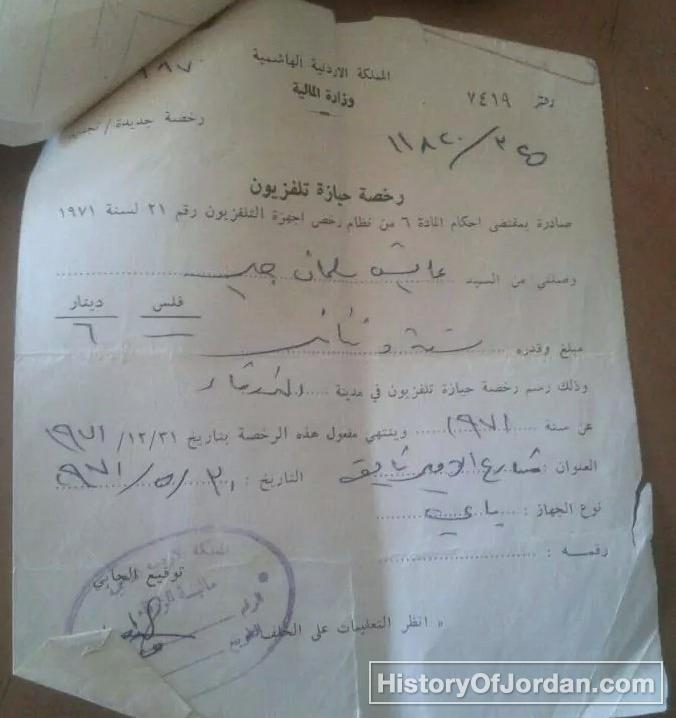 المملكة الاردنية الهاشمية
وزارة المالية
دفتر ٧٤١٩
رخصة جديدة /
١١٨٢٠/٣٤٥
رخصة حيازة تلفزيون
صادرة بمقتضى احكام المادة ٦ من نظام رخص اجهزة التلفزيون رقم ٢١ لسنة ١٩٧١
وصلني من السيد عايش سلمان
فلس دينار
— ٦
مبلغ وقدره ستة دنانير
وذلك رسم رخصة حيازة تلفزيون في مدينة الزرقاء
عن سنة ١٩٧١ وينتهي مفعول هذه الرخصة بتاريخ ٣١/١٢/١٩٧١
العنوان : شارع الامير شاكر التاريخ : ٣٠/٥/٩٧١
نوع الجهاز :
رقمه :
توقيع الجابي
المملكة الاردنية
مالية
الرقم
التاريخ
« انظر التعليمات على الخلف
HistoryOfJordan.com